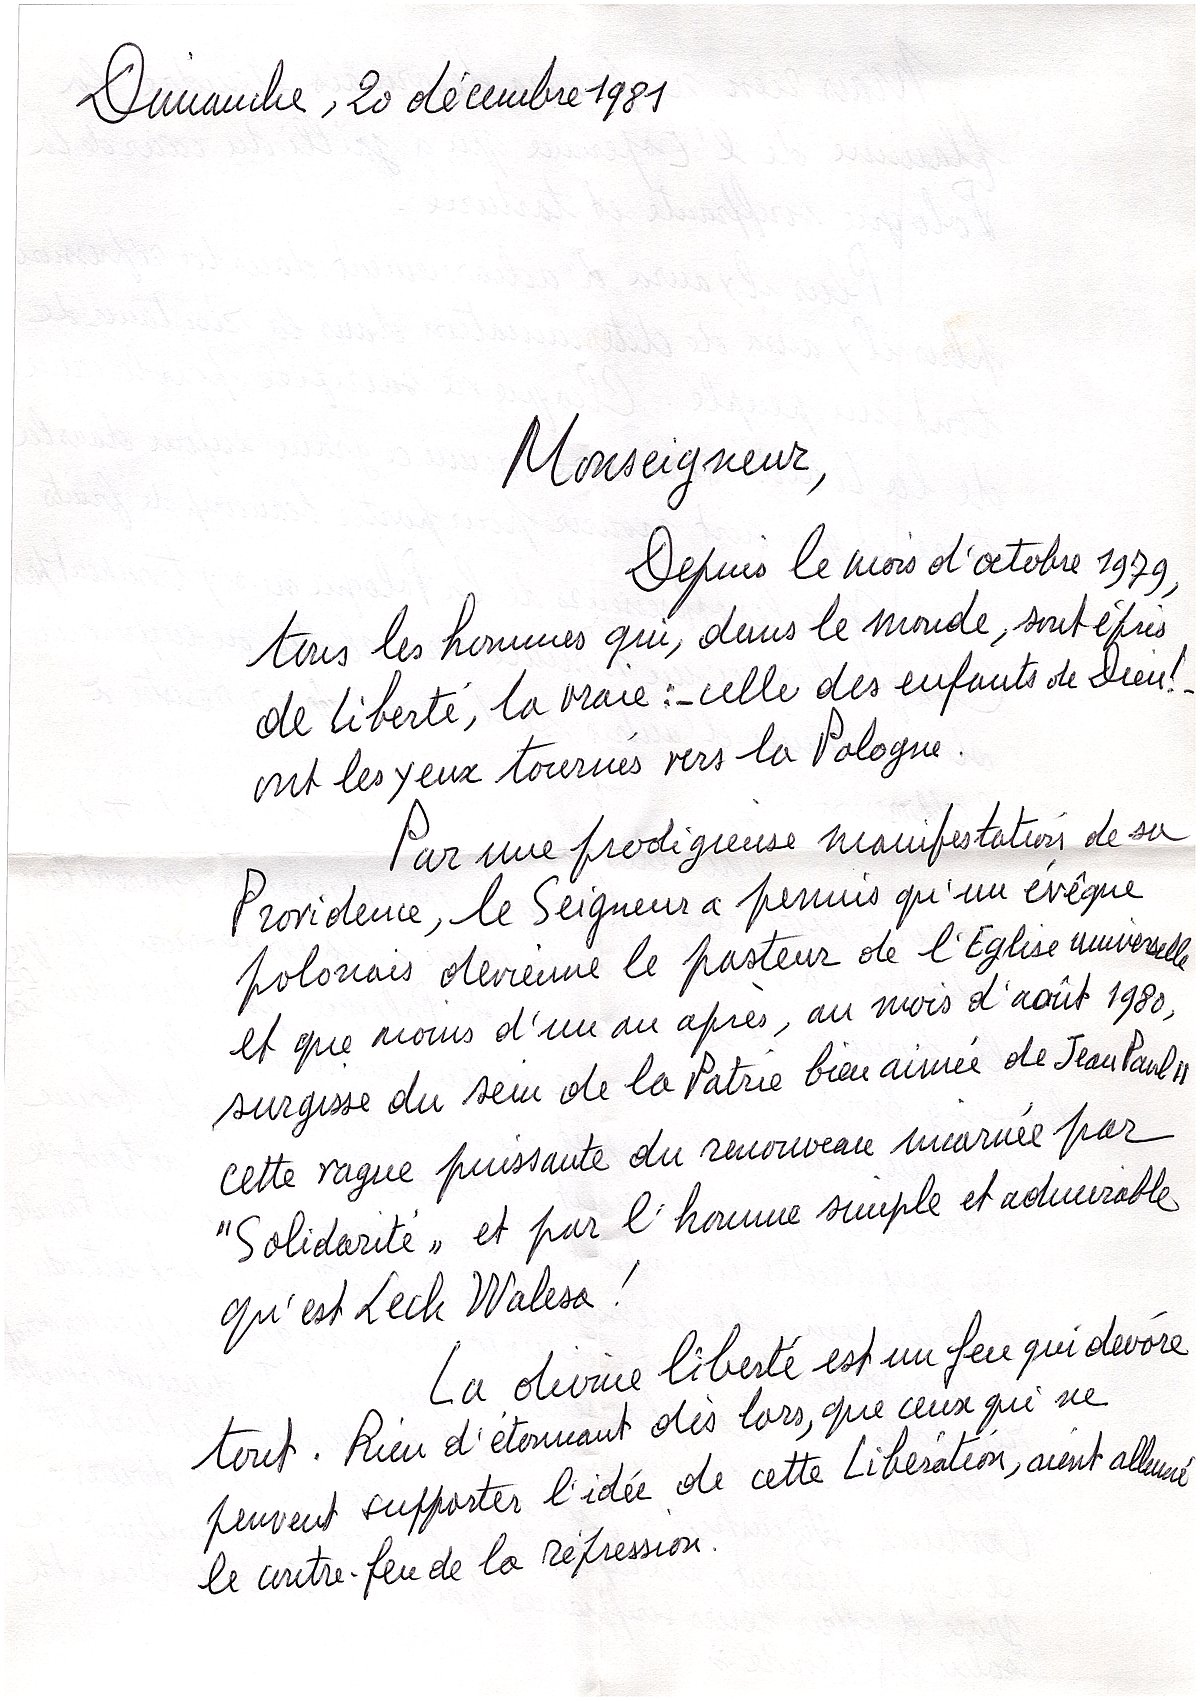 Dimanche, 20 décembre 1981
Monseigneur,
Depuis le mois d'octobre 1979,
tous les hommes qui, dans le monde, sont épris
de liberté, la vraie : - celle des enfants de Dieu! -
ont les yeux tournés vers la Pologne.
Par une prodigieuse manifestation de sa
Providence, le Seigneur a permis qu'un évêque
polonais devienne le pasteur de l'Eglise universelle
et que moins d'un an après, au mois d'août 1980,
surgisse du sein de la Patrie bien aimée de Jean Paul II
cette vague puissante du renouveau incarnée par
"Solidarité„ et par l'homme simple et admirable
qu'est Lech Walesa !
La divine liberté est un feu qui dévore
tout. Rien d'étonnant dès lors, que ceux qui ne
peuvent supporter l'idée de cette Libération, aient allumé
le contre-feu de la répression.